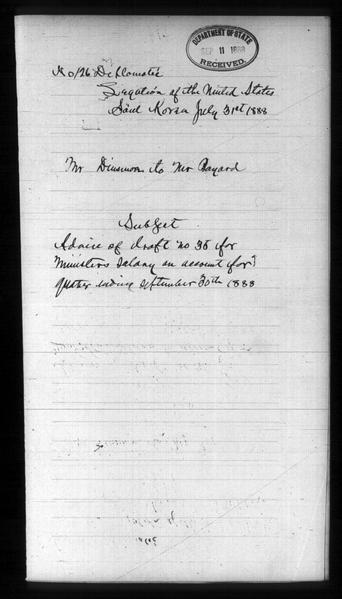 DEPARTMENT OF STATE
SEP 11 1888
RECEIVED.
No 126 Diplomatic
Legation of the United States
Söul Korea July 31st 1888
Mr Dinsmore to Mr Bayard
Subject
Advice of draft no 36 for
Ministers salary on account for
quarter ending September 30th 1888